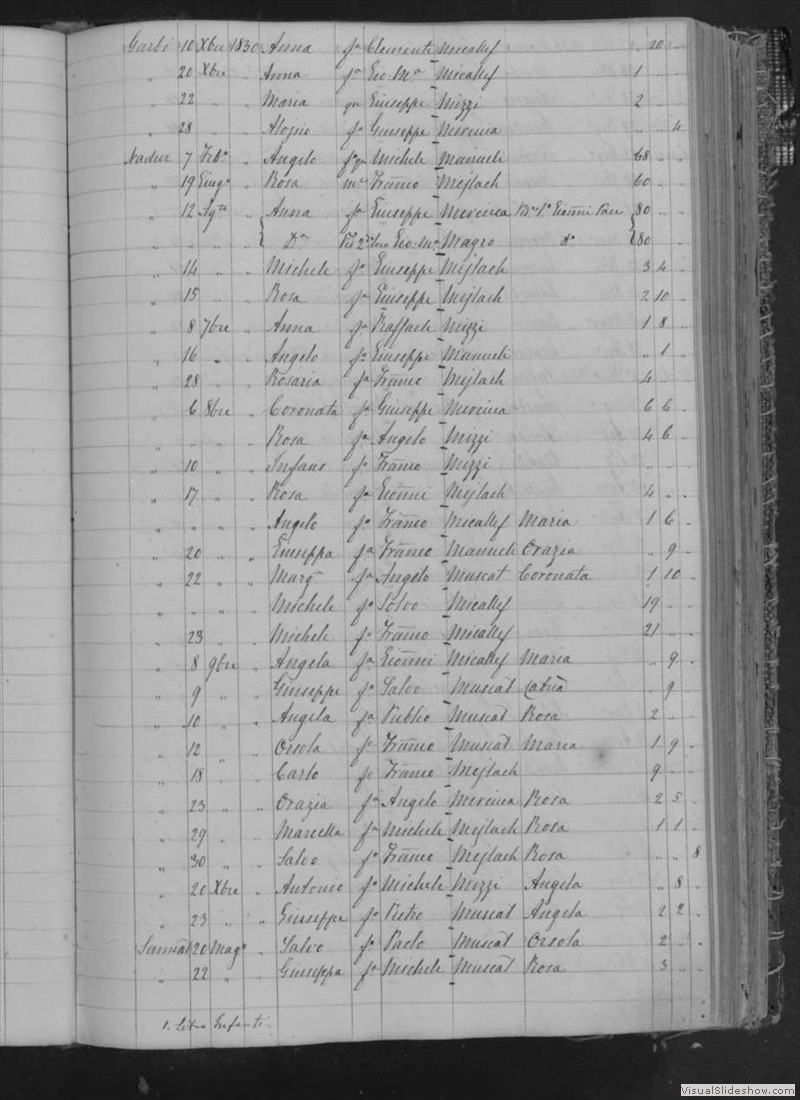 Garbo 10 Xbre 1830 Anna fa Clemente Micallef " 10 "
" 20 Xbre " Anna fa Gio. Ma Micallef 1 " "
" 22 " " Maria Giuseppe Mizzi 2 " "
" 28 " " Aloisio fo Giuseppe Mercieca " " 4
Nadur 7 Febo " Angelo Michele Manueli 68 " "
" 19 Giugo " Rosa Franco Mejlach 60 " "
" 12 Agto " Anna fa Giuseppe Mercieca Gioanni 80 " "
" " " " Da Gio. Ma Magro do 80 " "
" 14 " " Michele fo Giuseppe Mejlach 3 4 "
" 15 " " Rosa fa Giuseppe Mejlach 2 10 "
" 8 7bre " Anna fa Raffaele Mizzi 1 8 "
" 16 " " Angelo fo Giuseppe Manueli " 1 "
" 28 " " Rosaria fa Franco Mejlach 4 " "
" 6 8bre " Coronata fa Giuseppe Mercieca 6 6 "
" " " " Rosa fa Angelo Mizzi 4 6 "
" 10 " " Infans fo Franco Mizzi " " "
" 17 " " Rosa fa Gioanni Mejlach 4 " "
" " " " Angelo fo Franco Micallef Maria 1 6 "
" 20 " " Giuseppa fa Franco Manueli Orazia " 9 "
" 22 " " Marga fa Angelo Muscat Coronata 1 10 "
" " " " Michele fo Salvo Micallef 19 " "
" 23 " " Michele fo Franco Micallef 21 " "
" 8 9bre " Angela fa Gioanni Micallef Maria " 9 "
" 9 " " Giuseppe fo Salvo Muscat Catna " 9 "
" 10 " " Angela fa Publio Muscat Rosa 2 " "
" 12 " " Orsola fa Franco Muscat Maria 1 9 "
" 18 " " Carlo fo Franco Mejlach 9 " "
" 23 " " Orazia fa Angelo Mercieca Rosa 2 5 "
" 29 " " Marcella fa Michele Mejlach Rosa 1 1 "
" 30 " " Salvo fo Franco Mejlach Rosa " " 8
" 20 Xbre " Antonio fo Michele Mizzi Angela " 8 "
" 23 " " Giuseppe fo Pietro Muscat Angela 2 2 "
Sannat 20 Mago " Salvo fo Paolo Muscat Orsola 2 " "
" 22 " " Giuseppa fa Michele Muscat Rosa 3 " "
1. Libro Infanti
VisualSlideshow.com